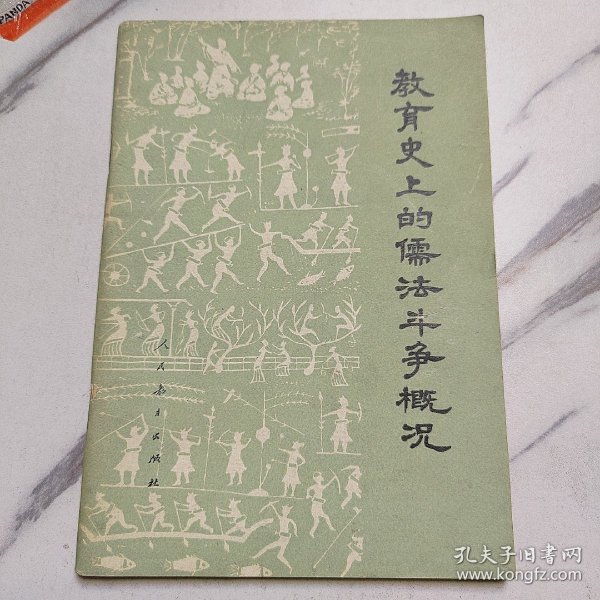 PANDA
教育史上的儒法斗争概况
人民教育出版社
孔夫子旧书网
www.kongfz.com